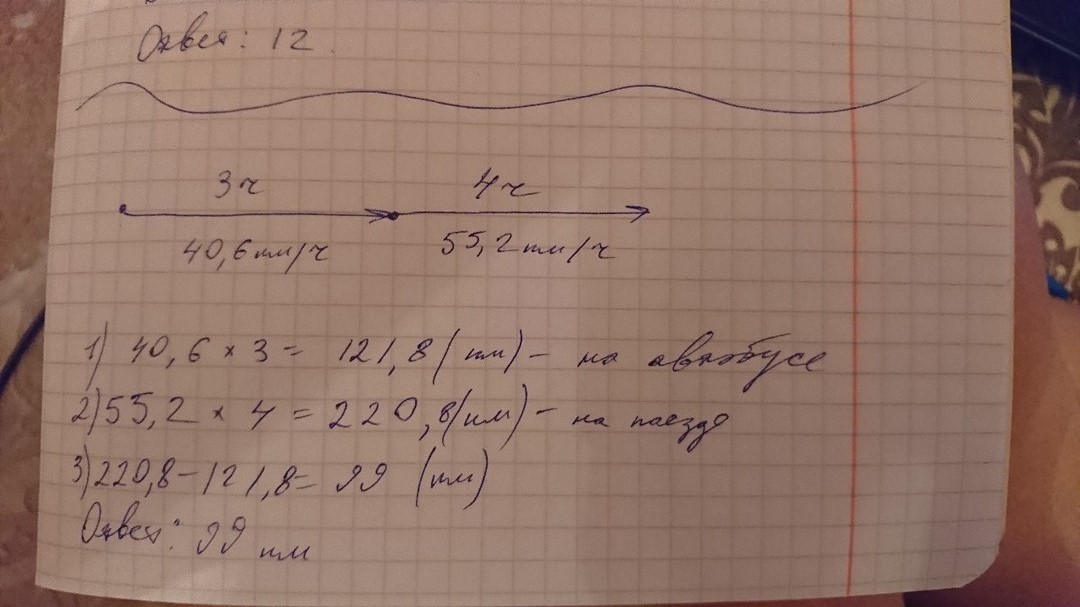 Ответ: 12.
3ч
4ч
40,6 км/ч
55,2 км/ч
1) 40,6 × 3 = 121,8 (км) - на автобусе
2) 55,2 × 4 = 220,8 (км) - на поезде
3) 220,8 - 121,8 = 99 (км)
Ответ: 99 км